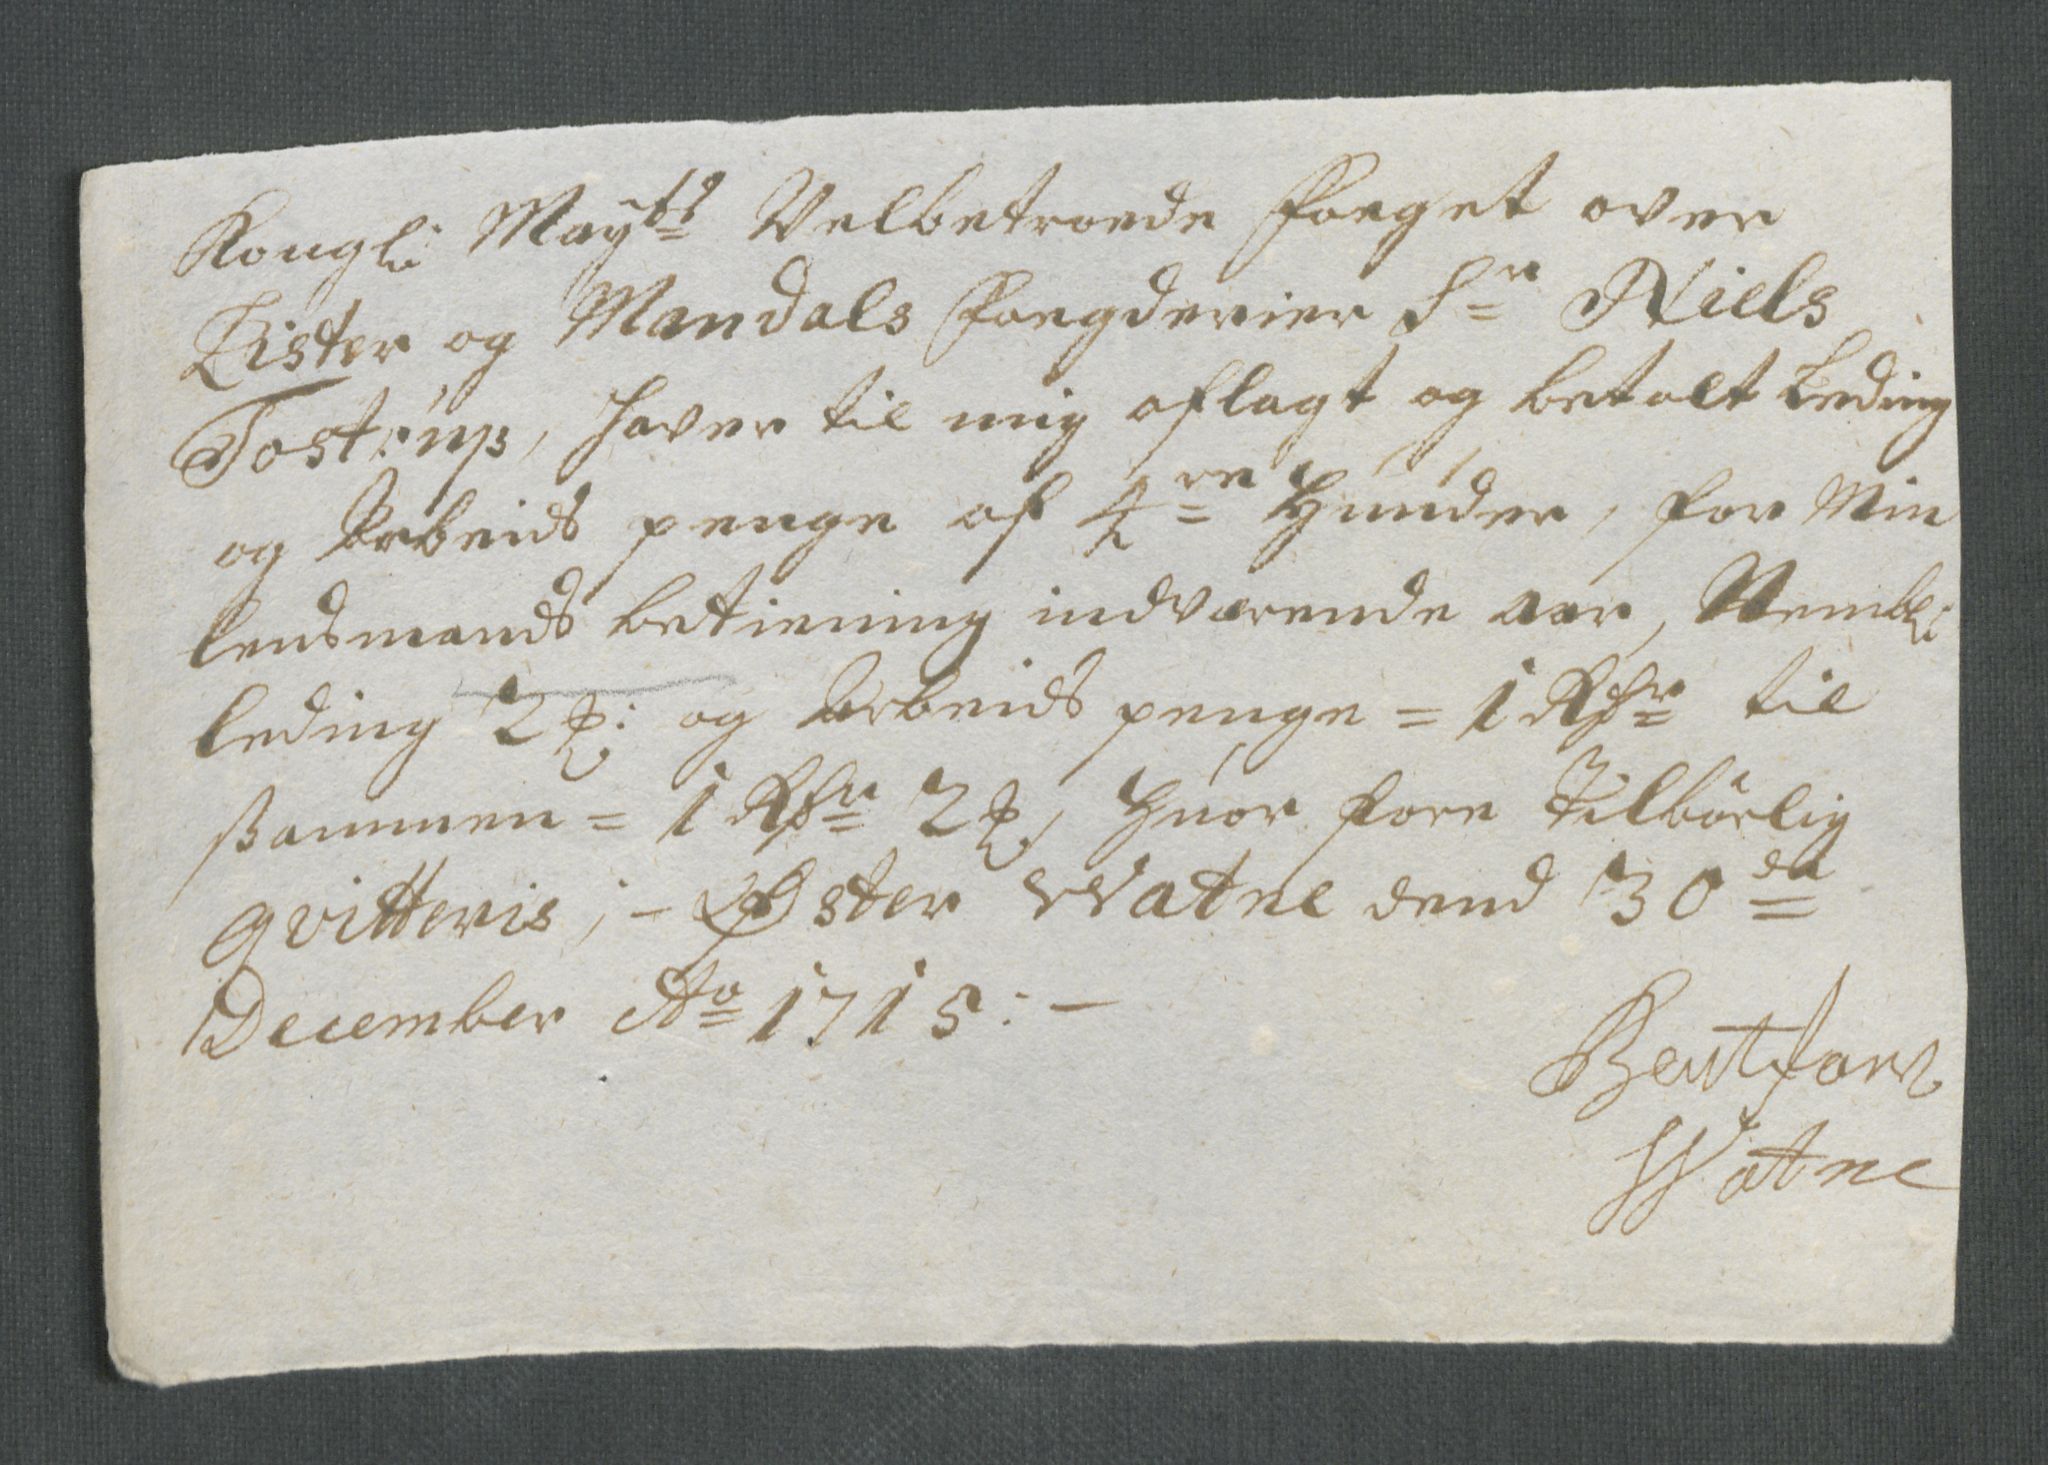 Kongli: Mayts Velbetroede Foeget over
Lister og Mandals Foegderier Sr Niels
Tostrup, haver til mig aflagt og betalt Leding
og Arbeids penge af 4re Hunder, for Min
lensmands betiening indværende aar, Nembl:
leding 2 og Arbeids penge = 1 Rdr til
sammen = 1 Rdr 2 Huor fore tilbörlig
qvitteris; - Øster Watne dend 30da
December Ao 1715: -
Bent
Watne